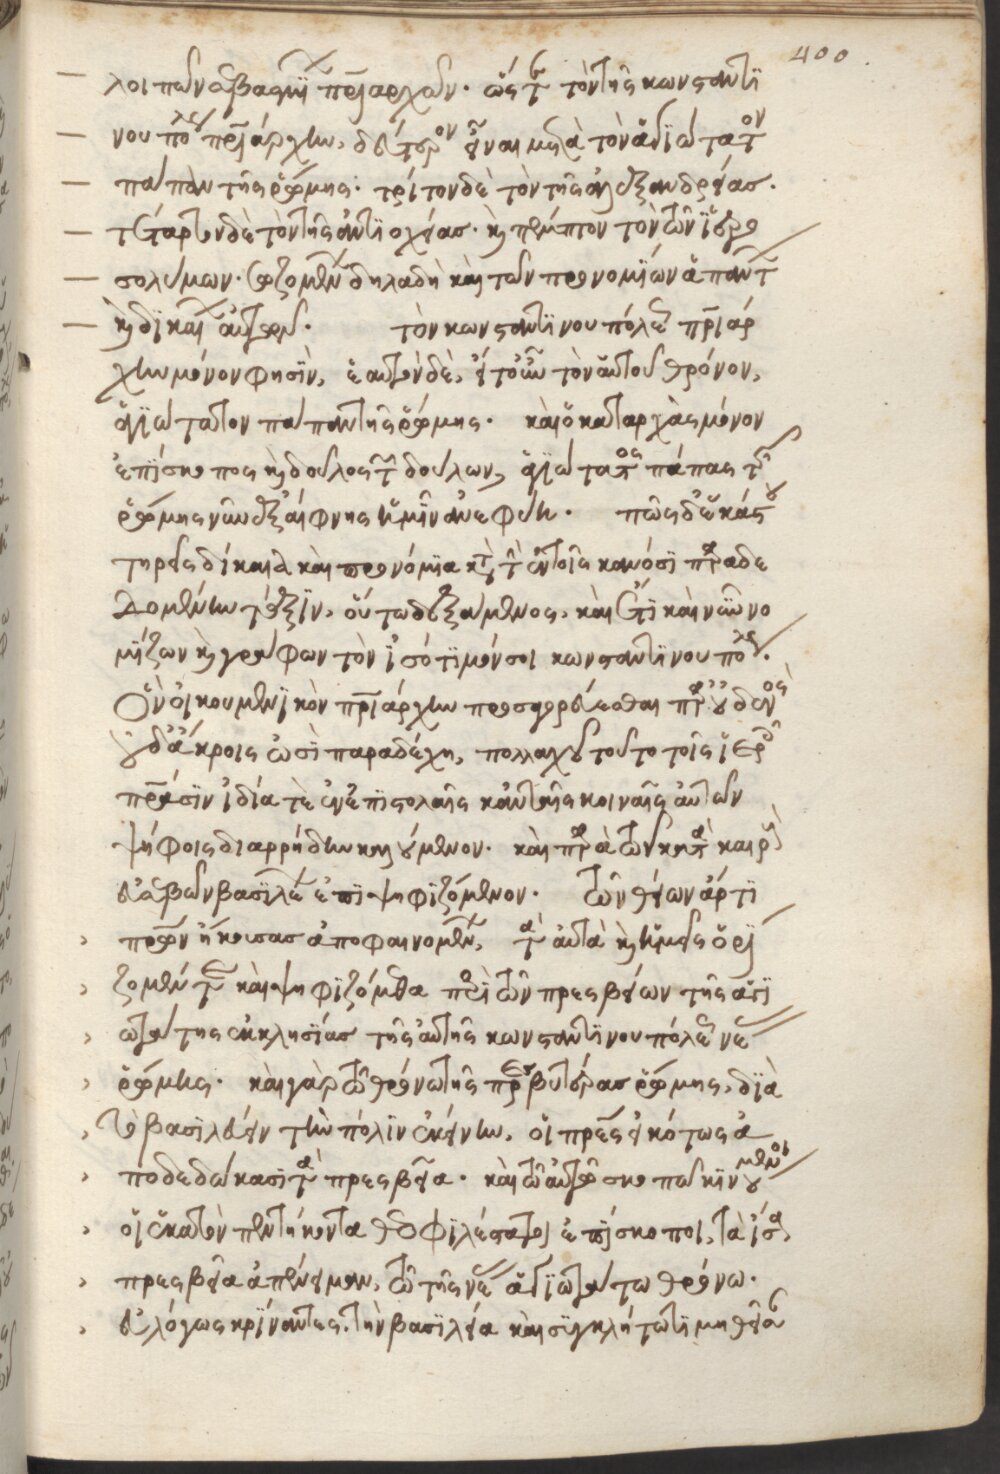 400
λοιπῶν εὐαγεῖ πριαρχῶν. ὥστε τὸν τῆς κωνσαντϊ
νου πόλε πριάρχην, δεύτερον εἶναι μετὰ τὸν ἁγιώτατον
πάπαν τῆς ῥώμης. τρίτον δὲ τὸν τῆς ἀλεξανδρείας.
τέταρτον δὲ τὸν τῆς ἀντϊοχείας. κὶ πέμπτον τὸν τῶν ἱερο
σολύμων. σωζομένων δηλαδὴ καὶ τῶν προνομίων ἅπαντ
κὶ δικαί αὐτῶν. τὸν κωνσαντϊνουπόλε πριάρ
χην μόνον φησίν, ἑαυτὸν δὲ, εἴτουν τὸν αὐτοῦ θρόνον,
ἁγιώτατον πάπαν τῆς ῥώμης. καὶ ὁ καταρχὰς μόνον
ἐπίσκοπος κὶ δοῦλος τῶν δούλων, ἁγιώτατος πάπας τῆς
ῥώμης νῦν ἐξαίφνης ἡμῖν ἀνεφάνη. πῶς δ' ἑκάστου
τηρεῖς δίκαια καὶ προνόμια κατὰ τὴν ἐν τοῖς κανόσι παραδε
δομένην τάξιν, οὕτω δεξάμενος, καὶ ἔτι καὶ νῦν νο
μίζων κὶ γράφων τὸν ἰσότιμόν σοι κωνσαντϊνουπόλεως.
Ὃν οἰκουμενϊκὸν πριάρχην προσαγορεύεσθαι παρ' οὐδενὸς
οὐδ' ἄκροις ὠσὶ παραδέχη, πολλαχοῦ τοῦτο τοῖς ἱερ
πρασιν ἰδίᾳ τὲ ἐν ἐπιστολαῖς κἀν ταῖς κοιναῖς αὐτῶν
ψήφοις διαρρήδην κείμενον. καὶ παρὰ τῶν κατὰ καιρὸν
εὐσεβῶν βασιλέων ἐπιψηφιζόμενον. τῶν θείων ἄρτι
πρων ἤκουσας ἀποφαινομένων, τὰ αὐτὰ κὶ ἡμεῖς ὁρί
ζομέν τε καὶ ψηφιζόμεθα περὶ τῶν πρεσβείων τῆς ἁγι
ωτάτης ἐκκλησίας τῆς αὐτῆς κωνσαντϊνουπόλε νέας
ῥώμης. καὶ γὰρ τῷ θρόνω τῆς πρεσβυτέρας ῥώμης, διὰ
τὸ βασιλεύειν τὴν πόλιν ἐκείνην, οἱ πρες εἰκότως ἀ
ποδεδώκασι τὰ πρεσβεῖα. καὶ τῷ αὐτῷ σκοπῷ κινούμενοι
οἱ ἑκατὸν πεντήκοντα θεοφιλέστατοι ἐπίσκοποι, τὰ ἴσα
πρεσβεῖα ἀπένειμαν, τῷ τῆς νέας ἁγιωτάτω θρόνω.
εὐλόγως κρίναντες, τὴν βασιλεία καὶ συγκλήτω τιμηθεῖσαν